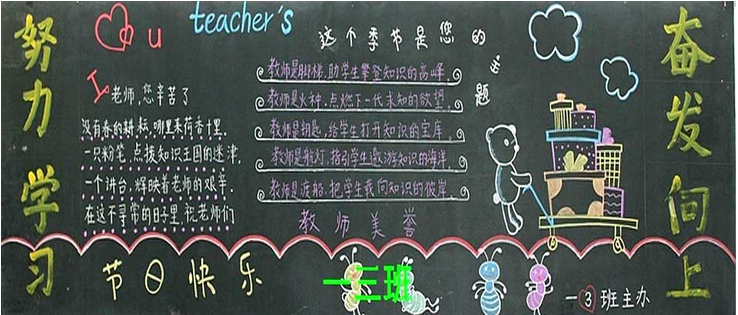 努力学习
u teacher's
这个季节是您的主题
老师,您辛苦了
没有春的耕耘,哪里来荷香十里.
一只粉笔,点拨知识王国的迷津,
一个讲台,辉映着老师的艰辛.
在这不寻常的日子里,祝老师们
节日快乐
教师是脚梯,助学生攀登知识的高峰.
教师是火种,点燃下一代未知的欲望.
教师是钥匙,给学生打开知识的宝库.
教师是航灯,指引学生遨游知识的海洋.
教师是渡船,把学生载向知识的彼岸.
教师美誉
一三班
一3班主办
奋发向上